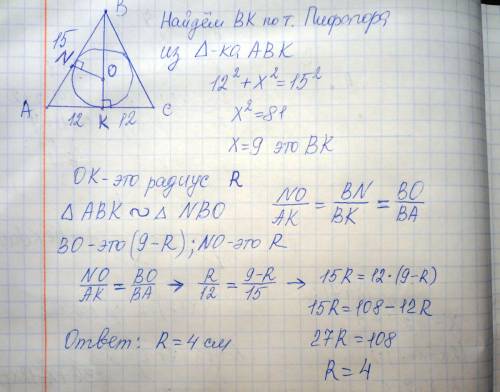 B
15
N
O
A
C
12 K 12
Найдём BK по т. Пифагора
из Δ-ка ABK
12² + x² = 15²
x² = 81
x = 9 это BK
OK - это радиус R
Δ ABK ∾ Δ NBO
NO/AK = BN/BK = BO/BA
BO - это (9-R); NO - это R
NO/AK = BO/BA → R/12 = 9-R/15 → 15R = 12·(9-R)
15R = 108 - 12R
27R = 108
R = 4
Ответ: R = 4 см